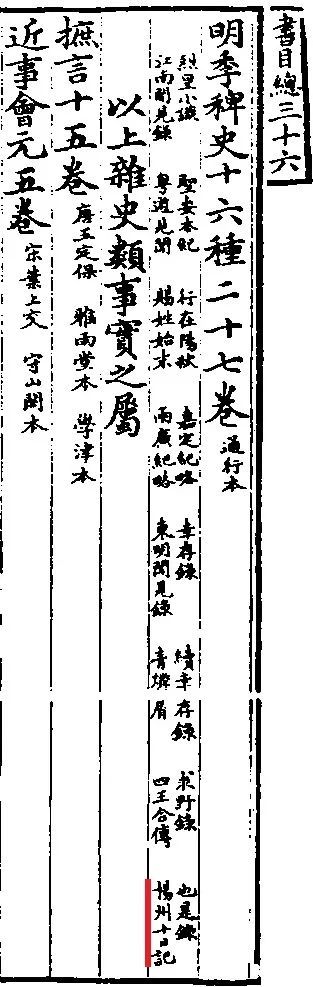 書目總三十六
明季稗史十六種二十七卷 通行本
烈皇小識 聖安本紀 行在陽秋 嘉定紀略 幸存錄 續幸存錄 求野錄 也是錄
江南聞見錄 粵游見聞 賜姓始末 兩廣紀略 東明聞見錄 青燐屑 四王合傳 揚州十日記
以上雜史類事實之屬
摭言十五卷 唐王定保 雅雨堂本 學津本
近事會元五卷 宋葉上交 守山閣本